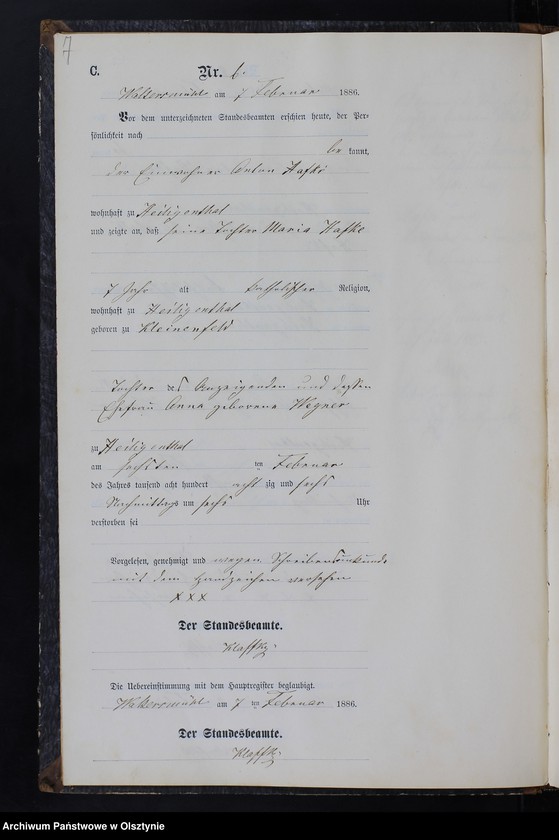 7
C. Nr. 6.
Waltersmühl am 7 Februar 1886.
Vor dem unterzeichneten Standesbeamten erschien heute, der Per-
sönlichkeit nach
be kannt,
der Einwohner Anton Hafke
wohnhaft zu Heiligenthal
und zeigte an, daß seine Tochter Maria Hafke
7 Jahr alt katholischer Religion,
wohnhaft zu Heiligenthal
geboren zu Kleinenfeld
Tochter des Anzeigenden und dessen
Ehefrau Anna geborene Wegner
zu Heiligenthal
am sechsten ten Februar
des Jahres tausend acht hundert acht zig und sechs
Nachmittags um sechs Uhr
verstorben sei
Vorgelesen, genehmigt und wegen Schreibensunkunde
mit dem Handzeichen versehen
x x x
Der Standesbeamte.
Klaffky.
Die Uebereinstimmung mit dem Hauptregister beglaubigt.
Waltersmühl am 7 ten Februar 1886.
Der Standesbeamte.
Klaffky.
Archiwum Państwowe w Olsztynie